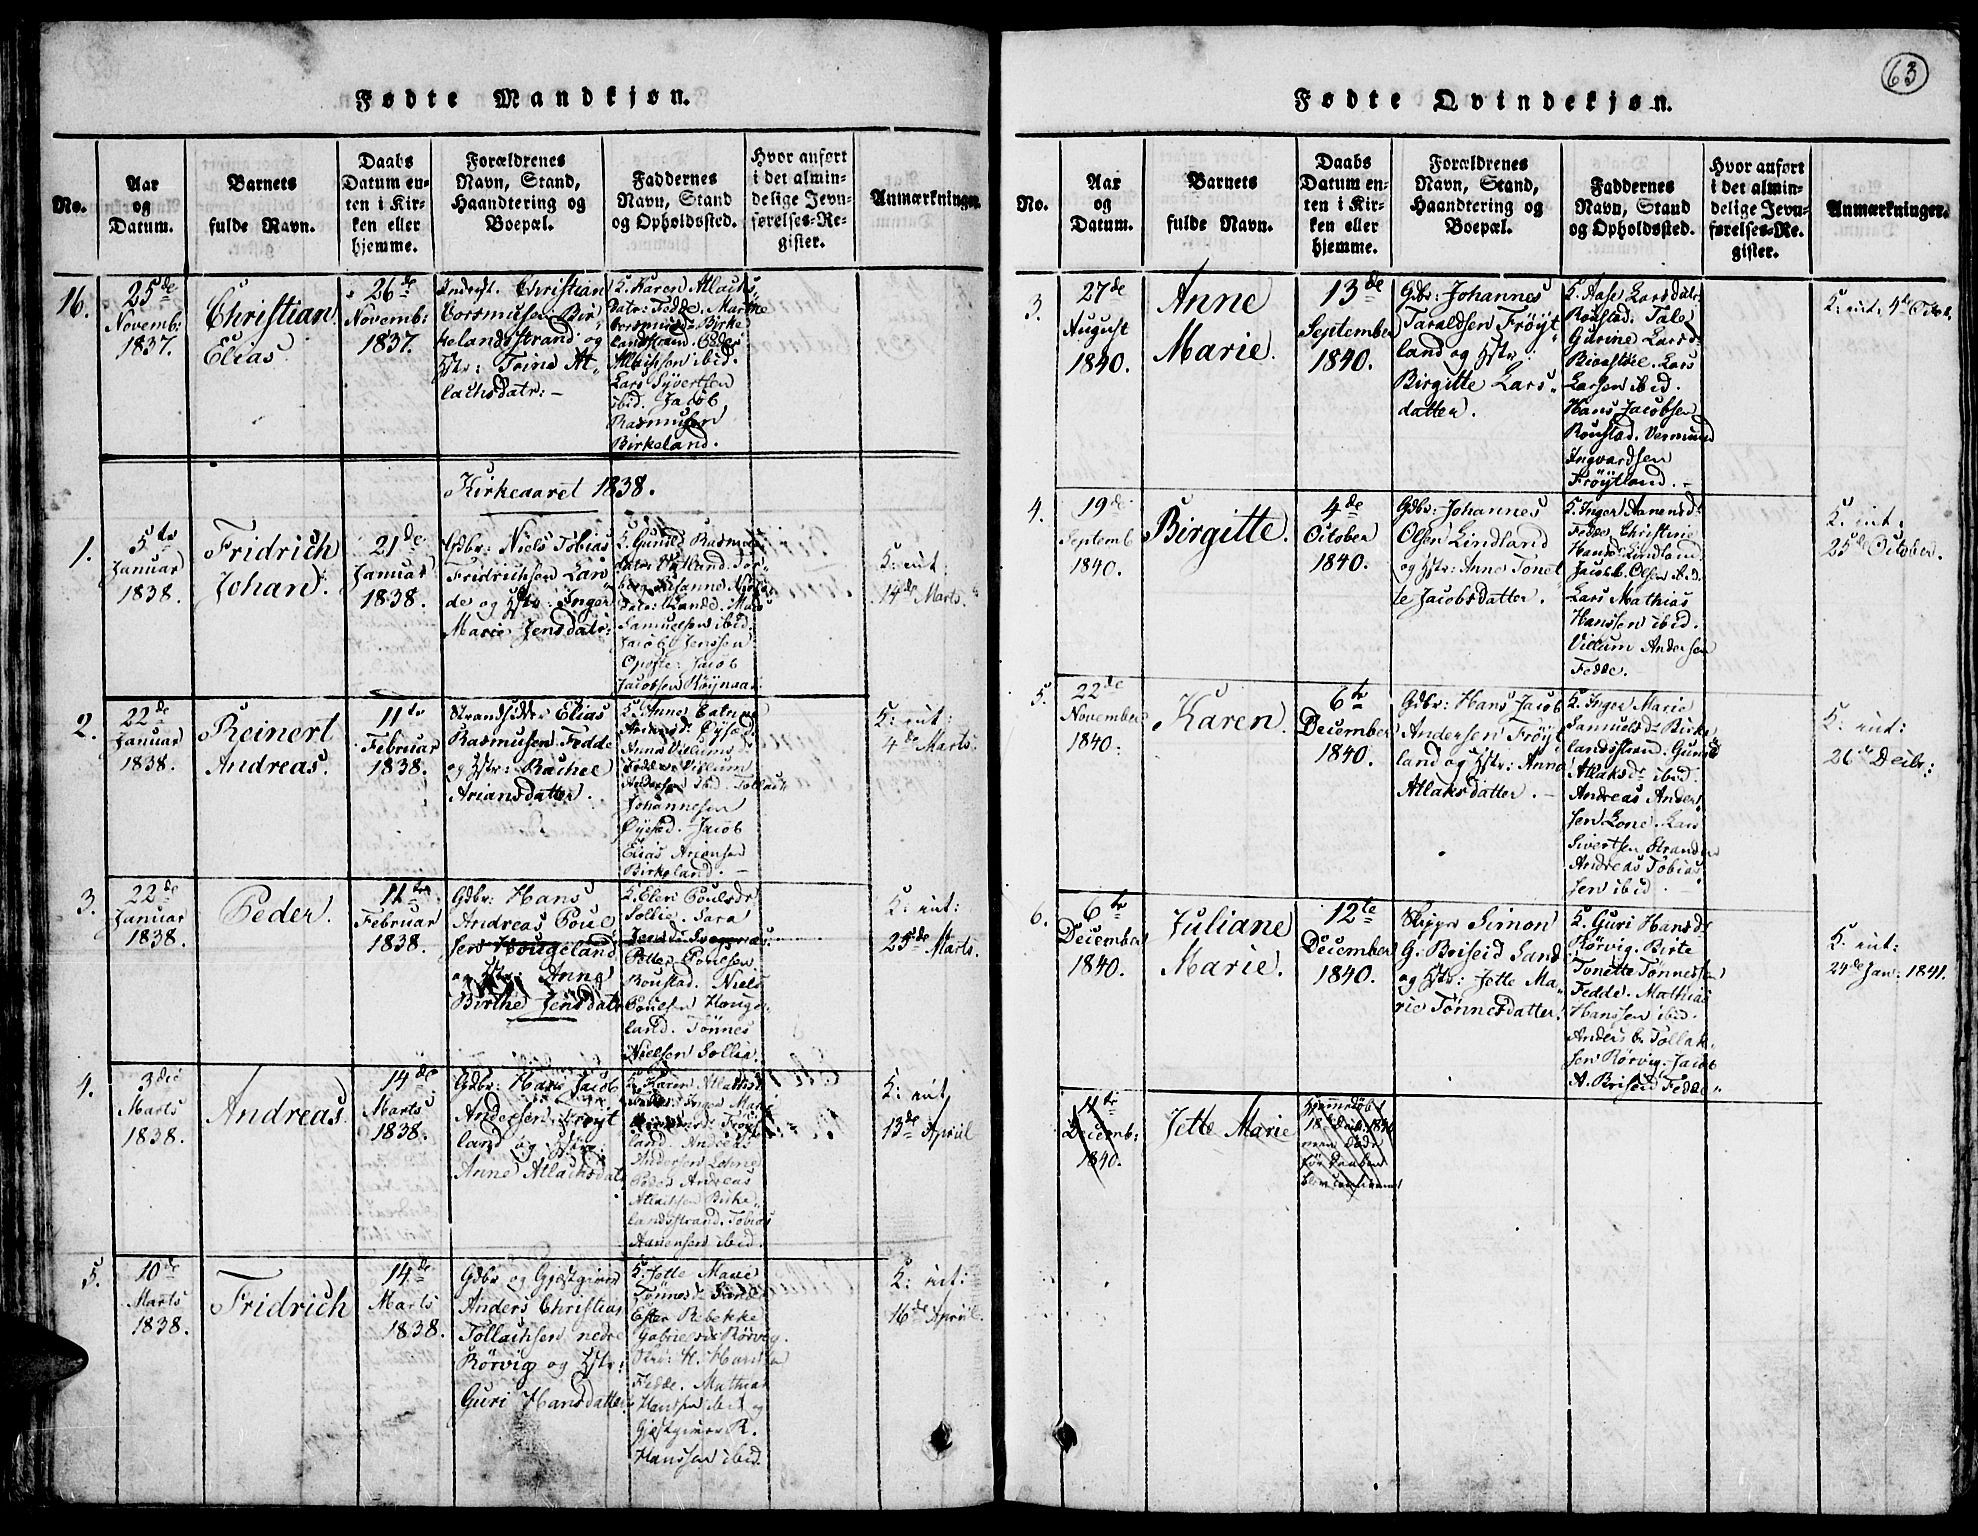 63
Fødte Mandkjøn.
No.
Aar
og
Datum.
Barnets
fulde Navn.
Daabs
Datum en-
ten i Kir-
ken eller
hjemme.
Forældrenes
Navn, Stand,
Haandtering og
Boepæl.
Faddernes
Navn, Stand
og Opholdssted.
Hvor anført
i det almin-
delige Jevn-
førelses-Re-
gister.
Anmærkninger.
16.
25de
Novemb:
1837.
Christian
Elias
26de
Novemb:
1837.
Christian
kelandsstrand og
Hstr: Toine At-
lachsdatr:-
K. Karen Atlachs
datr: Fedde. Marthe
landstrand. Peder
Atlachsen ibid.
Lars Syvertsen
ibid. Jacob
Rasmusen
Birkeland.
Kirkeaaret 1838.
1.
5te
Januar
1838.
Fridrich
Johan.
21de
Januar
1838.
Gdbr: Niels Tobias
Fridrichsen Lan
de og Hstr: Inger
Marie Jensdatr:
K. Gunild Rasmus
Samuelsen ibid.
Jacob Jenssen
Opofte: Jacob
Jacobsen Røÿnaas.
K: int:
14de Marts.
2.
22de
Januar
1838.
Reinert
Andreas.
11te
Februar
1838.
Strandsidder Elias
Rasmusen Fedde
og Hstr: Rachel
Ariansdatter.
Johannesen
Øÿesæd. Jacob
Elias Ariensen
Birkeland.
K: int:
4de Marts.
3.
22de
Januar
1838.
Peder.
11te
Februar
1838.
Gdbr: Hans
Andreas Poul
sen Hougeland
og Hstr: Anne
Birthe Jensdatr
K. Elen Poulsdr
Sollie. Sara
Petter Poulsen
Roustad. Niels
Poulsen Houge-
land. Tønnes
Nielsen Sollie.
K: int:
25de Marts.
4.
3die
Marts
1838.
Andreas
14de
Marts
1838.
Gdbr: Hans Jacob
Andersen Frøÿt
land og Hstr:
Anne Atlachsdatr
K. Karen Atlachsd.
land. Andreas
Andersen Lohne
Peder Andreas
Atlachsen Birke
landsstrand. Tobias
Aanensen ibid.
K: int
13de April
5.
10de
Marts
1838.
Fridrich
14de
Marts
1838.
Gdbr og Gjæstgiver
Anders Christian
Tollachsen nedre
Rørvig og Hstr:
Guri Hansdatter
K. Jette Marie
Tønnesd. Sande
Ester Rebekke
Gabrielsdr Rørvig.
Fedde. Mathias
Hansen ibid og
Gjæstgiver R.
Hanssen ibid.
K: int:
16de April.
Fødte Qvindekjøn.
No.
Aar
og
Datum.
Barnets
fulde Navn.
Daabs
Datum en-
ten i Kir-
ken eller
hjemme.
Forældrenes
Navn, Stand,
Haandtering og
Boepæl.
Faddernes
Navn, Stand
og Opholdssted.
Hvor anført
i det almin-
delige Jevn-
førelses-Re-
gister.
Anmærkninger.
3.
27de
August
1840.
Anne
Marie.
13de
September
1840.
Gdbr: Johannes
Taraldsen Frøÿt
land og Hstr:
Birgitte Lars-
datter.
K. Aase Larsdatr:
Roustad. Tale
Gurine Larsd-
Larsen ibid.
Hans Jacobsen
Roustad. Vermund
Ingvardsen
Frøÿtland.-
K: int: 4de Octbr.
4.
19de
Septemb
1840.
Birgitte.
4de
October
1840.
Gdbr: Johannes
Olsen Lindland
og Hstr: Anne Tonet
te Jacobsdatter.
K. Inger Aanensd-
Fedde Christine
Hansd- Lindland
Jacob Olsen ibid
Lars Mathias
Hanssen ibid.
Villum Andersen
Fedde.
K. int:
25de October.
5.
22de
November
1840.
Karen.
6te
December
1840.
Gdbr: Hans Jacob
Andersen Frøÿt
land og Hstr: Anna
Atlaksdatter.-
K. Inger Marie
Samuelsd- Birke
landsstrand. Gunild
Atlaksdr ibid.
Andreas Ander
sen Lone. Lars
Sivertsen Stranden
Andreas Tobias
sen ibid.-
K: int:
26de Decbr:
6.
6te
December
1840.
Juliane
Marie.
12te
December
1840.
Skippr Simon
G. Briseid Sand
og Hstr: Jette Ma-
rie Tønnesdatter.
K. Guri Hansdr
Rørvig. Birte
Tonette Tønnesdr
Fedde. Mathias
Hanssen ibid.
Anders C. Tollak-
sen Rørvig. Jacob
A. Briseid Fedde
K. int:
24de Jan: 1841.
11te
Decemb:
1840.
Jette Marie
Hjemmedøbt
18de Decb. 1840